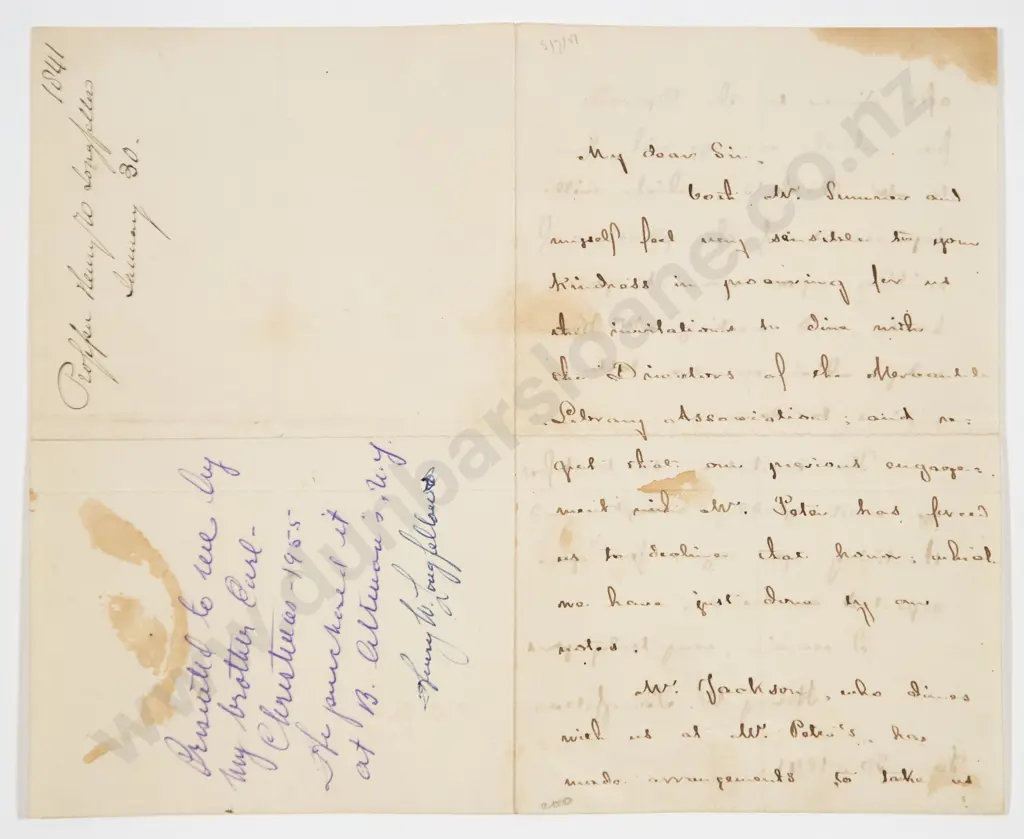 1841
Professer Henry W Longfellow
January 30.
Presented to me by
my brother Carl-
Christmas-1955
He purchased it
at B. Altman's, N.Y.
Henry W. Longfellow
My dear Sir,
both Mr. Sumner and
myself feel very sensible to your
kindness in procuring for us
the invitations to dine with
the Directors of the Mercantile
Library Association; and re=
gret that our previous engage=
ment with Mr. Peter has forced
us to decline that honor; which
we have just done by our
notes.
Mr. Jackson, who dines
with us at Mr. Peter's, has
made arrangements to take us
200
www.dunbarsloane.co.nz